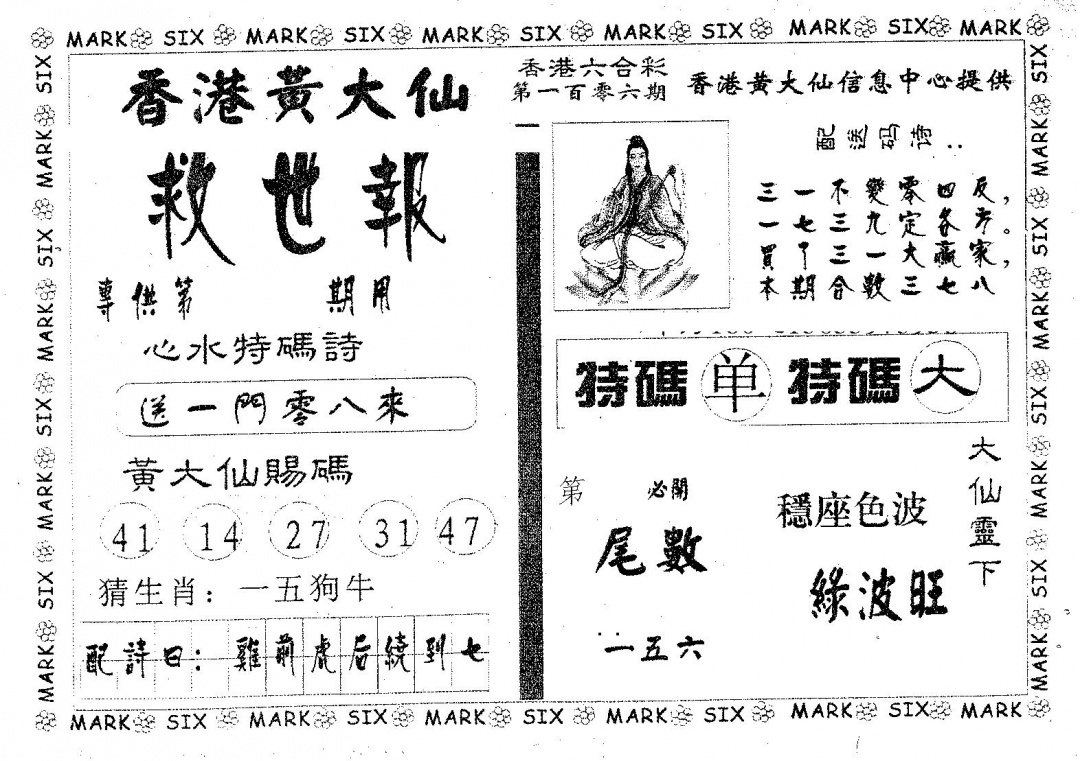 MARK SIX MARK SIX MARK SIX MARK SIX MARK SIX MARK
香港黃大仙
救世報
專供第 期用
心水特碼詩
送一門零八來
黃大仙賜碼
41 14 27 31 47
猜生肖：一五狗牛
配詩曰：雞前虎后繞到七
香港六合彩
第一百零六期
香港黃大仙信息中心提供
配送码诗：
三一不變零四反，
一七三九定各方。
買了三一大贏家，
本期合數三七八
特碼 单 特碼 大
第 必開
尾數
一五六
穩座色波
綠波旺
大仙靈下
SIX MARK SIX MARK SIX MARK SIX MARK
SIX MARK SIX MARK SIX MARK SIX MARK
MARK SIX MARK SIX MARK SIX MARK SIX MARK SIX MARK